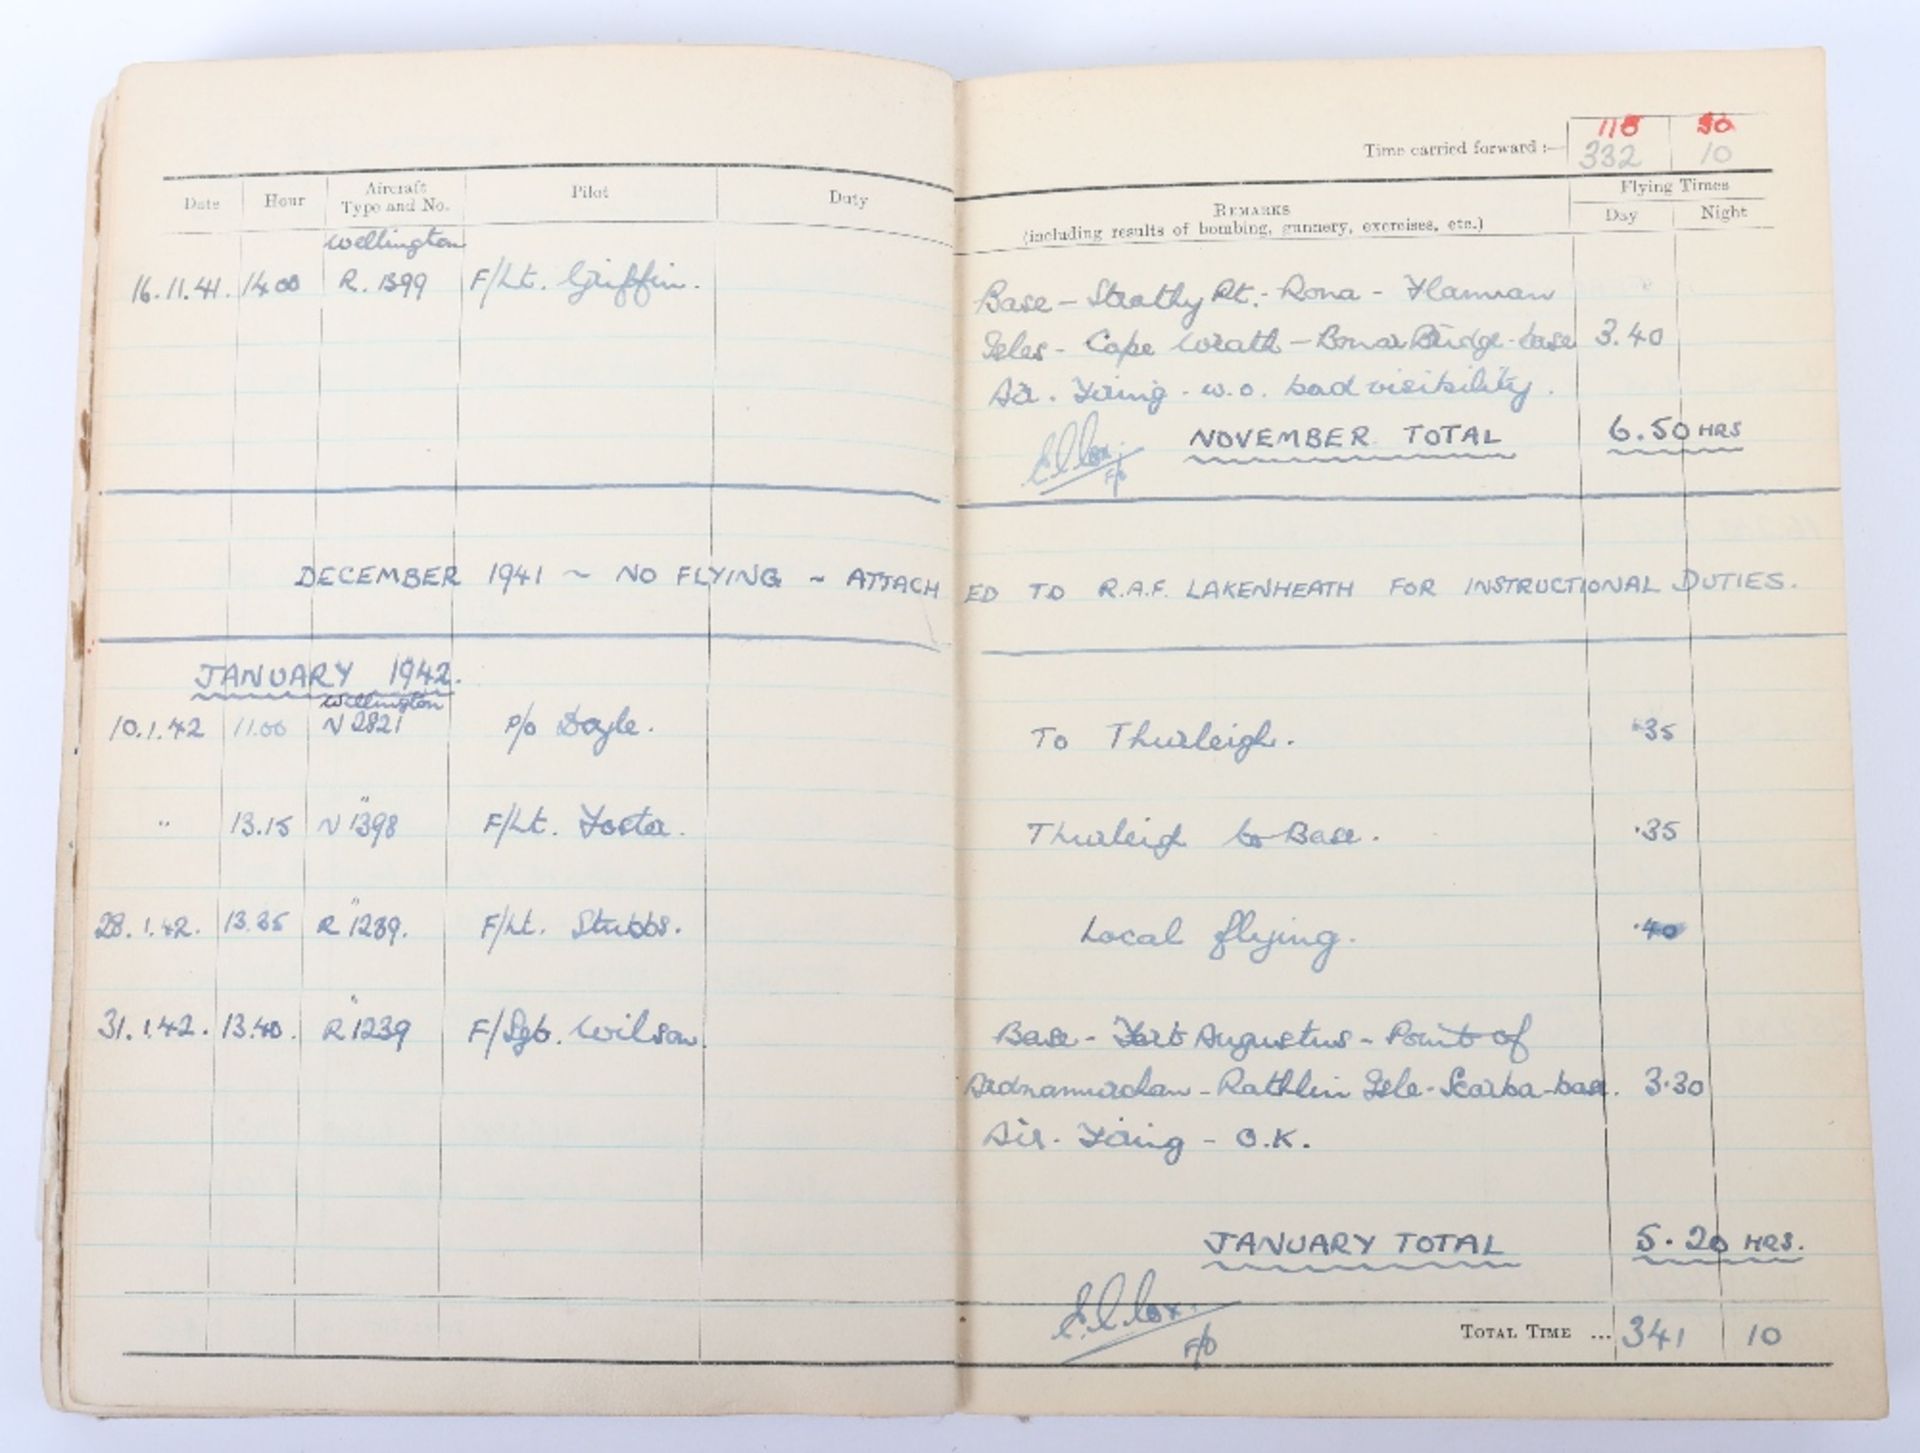 Time carried forward :— 118 50
332 10
Date Hour Aircraft Type and No. Pilot Duty REMARKS (including results of bombing, gunnery, exercises, etc.) Flying Times Day Night
Wellington
16.11.41. 1400 R. 1399 F/Lt. Griffin. Base - Strathy Pt. - Rona - Flannan
Isles - Cape Wrath - Bonar Bridge - base 3.40
Air. Firing - w.o. bad visibility.
NOVEMBER TOTAL 6.50 HRS
E.C. Cox. F/O
DECEMBER 1941 ~ NO FLYING ~ ATTACHED TO R.A.F. LAKENHEATH FOR INSTRUCTIONAL DUTIES.
JANUARY 1942.
Wellington
10.1.42 11.00 N 2821 P/O Doyle. To Thurleigh. .35
" 13.15 N "1398 F/Lt. Foster. Thurleigh to Base. .35
28.1.42. 13.35 R "1239. F/Lt. Stubbs. Local flying. .40
31.1.42. 13.40. R "1239 F/Sgt. Wilson. Base - Fort Augustus - Point of
Ardnamurchan - Rathlin Isle - Scarba - base. 3.30
Air. Firing - O.K.
JANUARY TOTAL 5.20 HRS.
E.C. Cox. F/O
TOTAL TIME ... 341 10